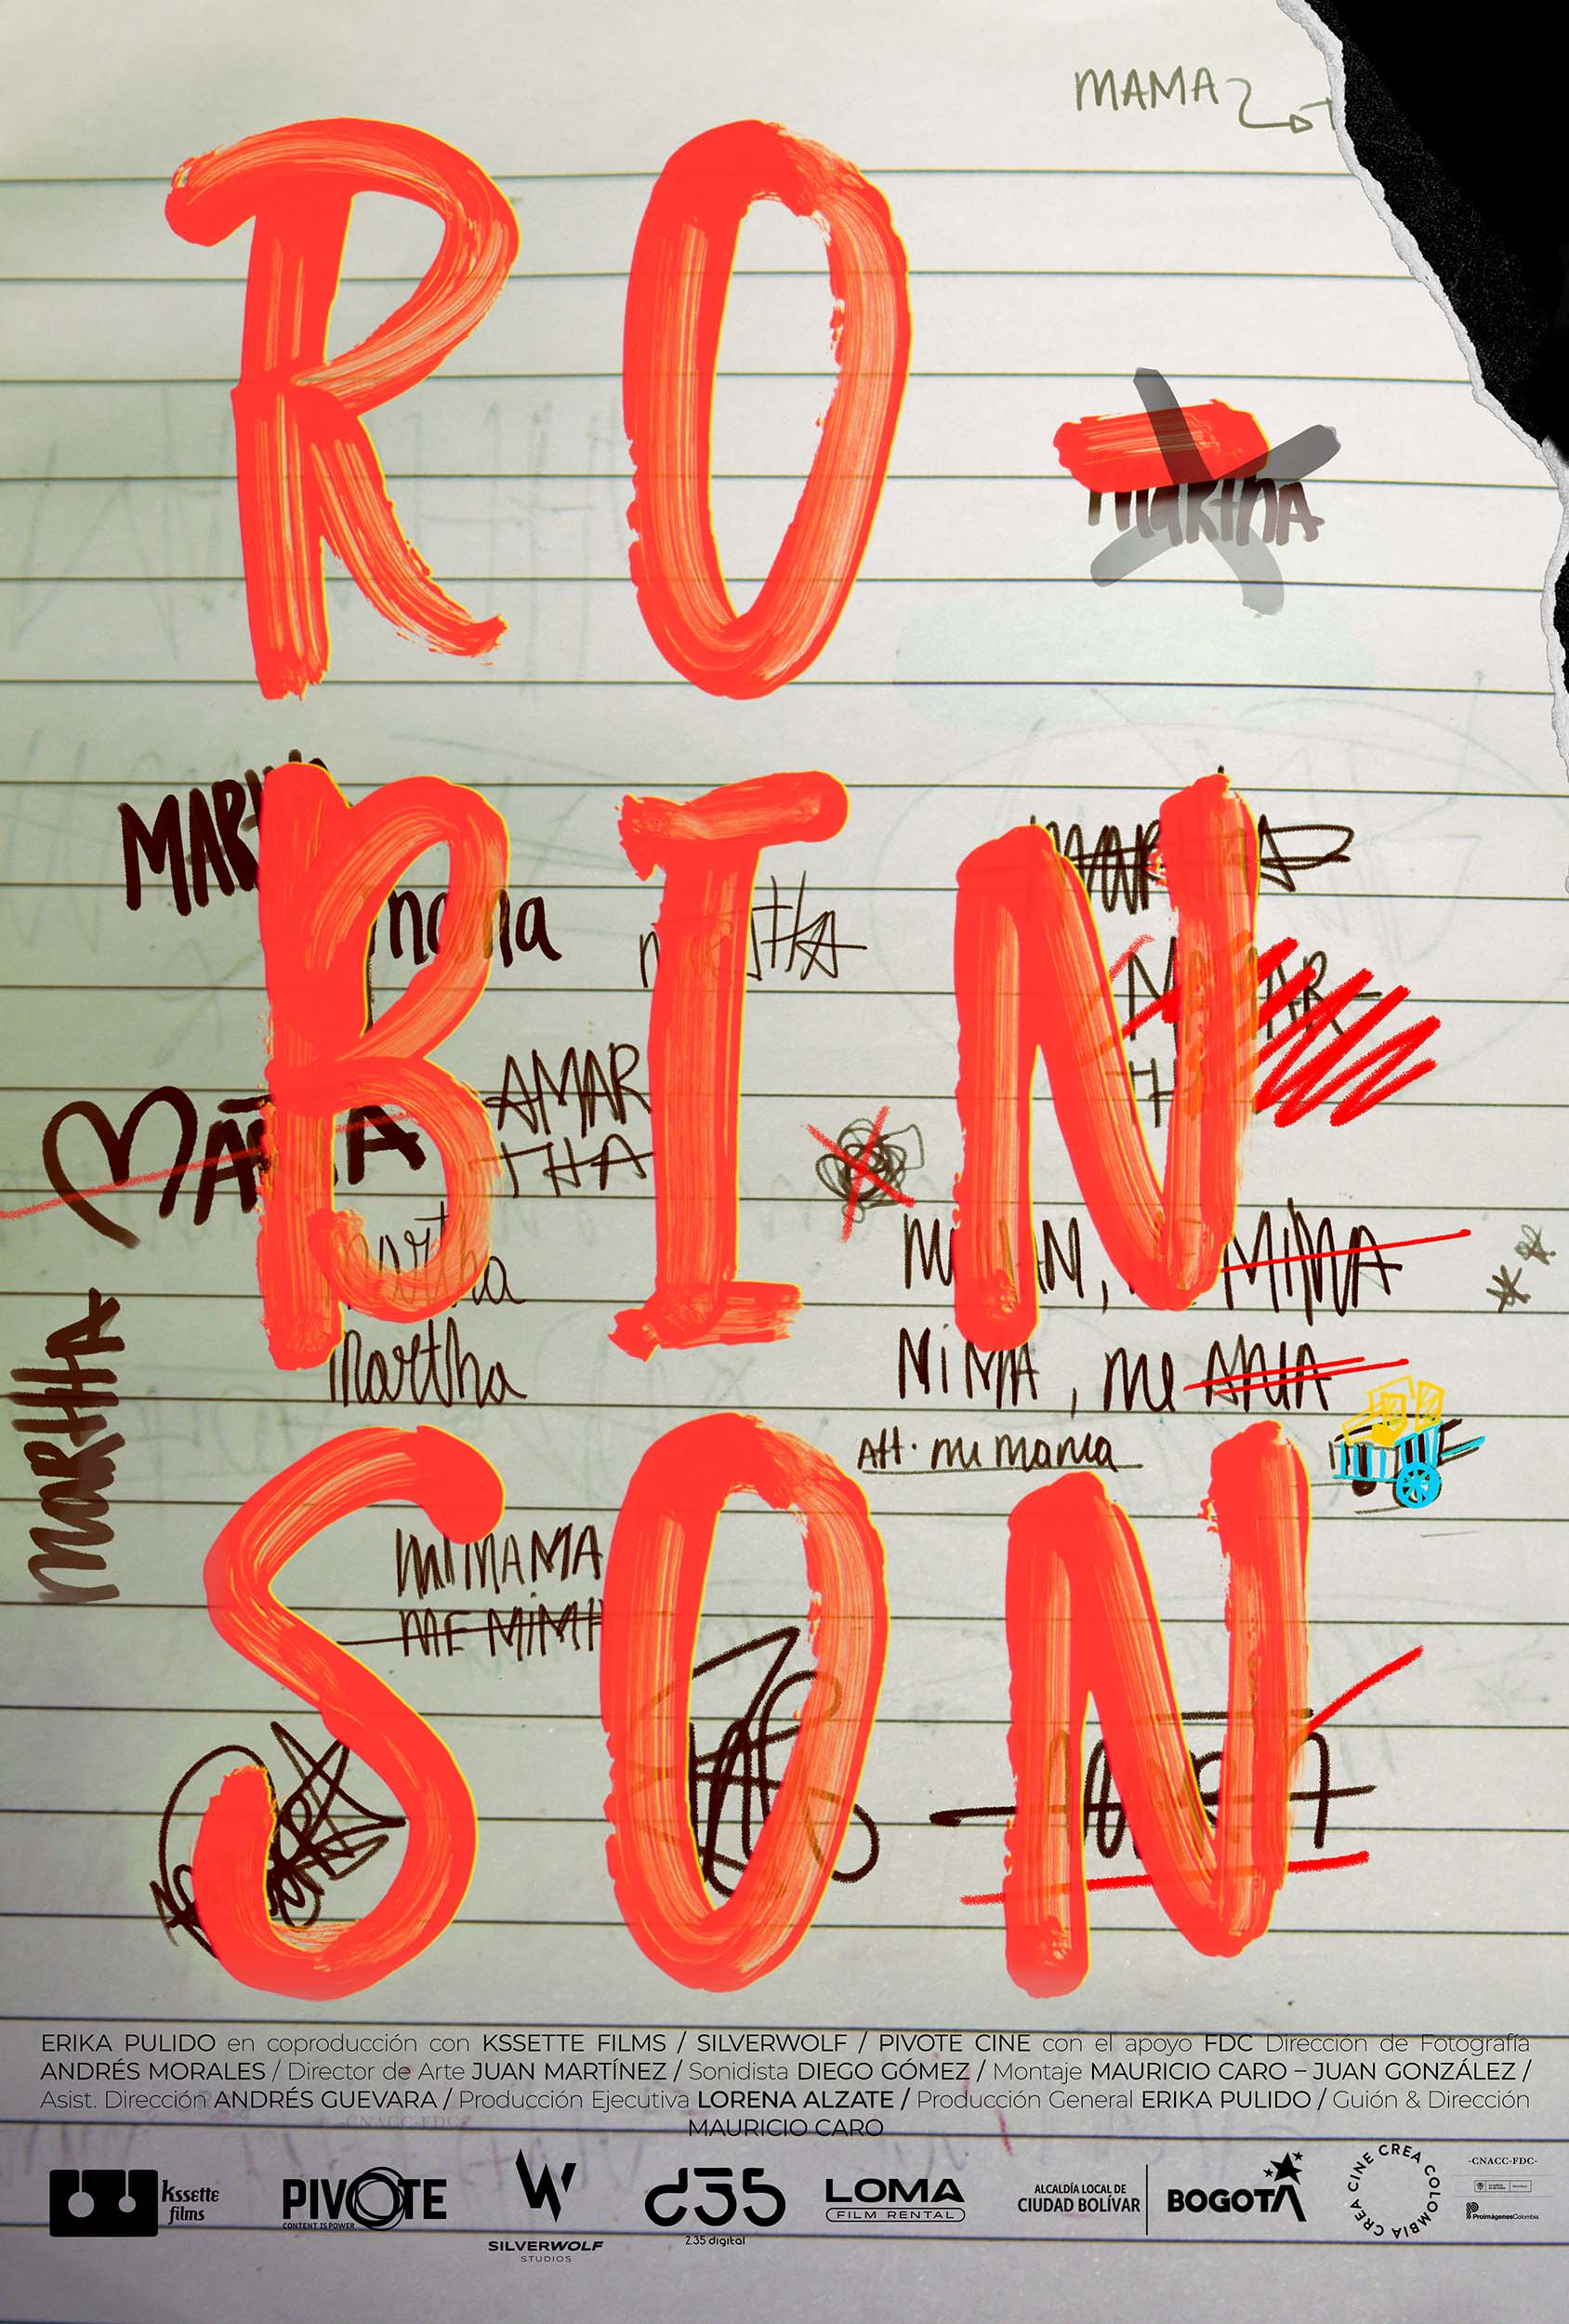 MAMA
RO-
martha
BIN
AMAR
THA
MAR-
martha
martha
MARTHA
MiMA, me AMA
Att. mi mama
SON
mi MAMA
ME MIM
ERIKA PULIDO en coproducción con KSSETTE FILMS / SILVERWOLF / PIVOTE CINE con el apoyo FDC Dirección de Fotografía
ANDRÉS MORALES / Director de Arte JUAN MARTÍNEZ / Sonidista DIEGO GÓMEZ / Montaje MAURICIO CARO – JUAN GONZÁLEZ /
Asist. Dirección ANDRÉS GUEVARA / Producción Ejecutiva LORENA ALZATE / Producción General ERIKA PULIDO / Guión & Dirección
MAURICIO CARO
kssette
films
PIVOTE
CONTENT IS POWER
SILVERWOLF
STUDIOS
235
2.35 digital
LOMA
FILM RENTAL
ALCALDÍA LOCAL DE
CIUDAD BOLÍVAR
BOGOTÁ
CINE CREA COLOMBIA CREA
-CNACC-FDC-
ProimágenesColombia